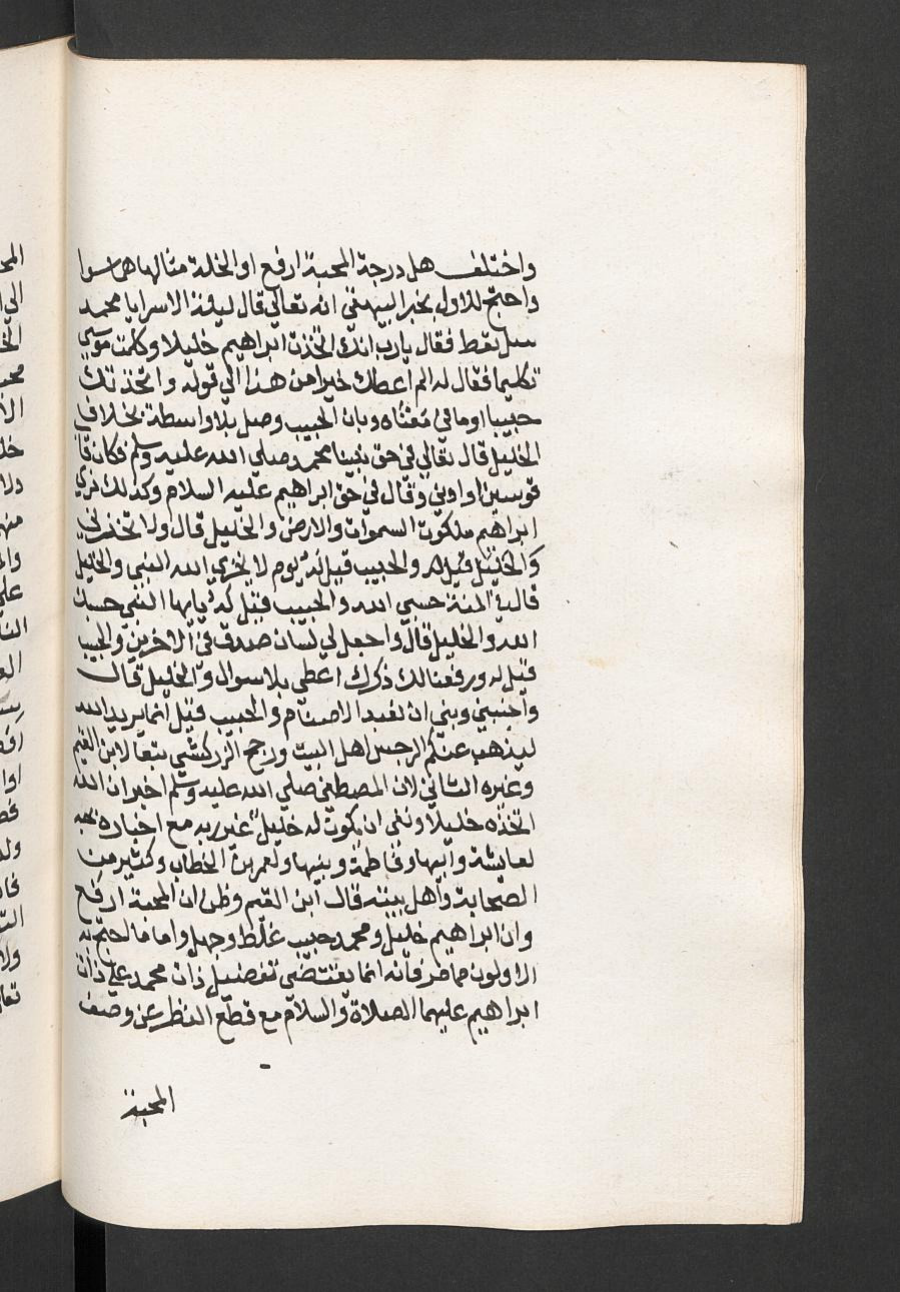 واختلف هل درجة المحبة ارفع او الخلة مثالها هي سوا
واحتج للاول بخبر البيهقي انه تعالى قال ليلة الاسرا يا محمد
سل تعط فقال يارب انك اتخذت ابراهيم خليلا وكلمت موسي
تكليما فقال له الم اعطك خيرا من هذا الي قوله واتخذتك
حبيبا او ما في معناه وبان الحبيب وصل بلا واسطة بخلاف
الخليل قال تعالي في حق نبينا محمد صلي الله عليه وسلم فكان قاب
قوسين او ادني وقال في حق ابراهيم عليه السلام وكذلك نري
ابراهيم ملكوت السموات والارض والخليل قال ولا تخزني
والحبيب قيل له يوم لا يخزي الله النبي والخليل
قال في المحنة حسبي الله والحبيب قيل له يايها النبي حسبك
الله والخليل قال واجعل لي لسان صدق في الاخرين والحبيب
قيل له ورفعنا لك ذكرك اعطي بلا سوال والخليل قال
واجنبني وبني ان نعبد الاصنام والحبيب قيل انما يريد الله
ليذهب عنكم الرجس اهل البيت ورجح الزركشي تبعا لابن القيم
وغيره الثاني لان المصطفي صلي الله عليه وسلم اخبر ان الله
اتخذه خليلا ونفي ان يكون له خليل غير ربه مع اخباره بحبه
لعايشة وابيها وفاطمة وبنيها ولعمر بن الخطاب وكثير من
الصحابة واهل بيته قال ابن القيم وظن ان المحبة ارفع
وان ابراهيم خليل ومحمد حبيب غلط وجهل واما ما احتج به
الاولون مما مر فانه انما يقتضي تفضيل ذات محمد علي ذات
ابراهيم عليهما الصلاة والسلام مع قطع النظر عن وصف
المحبة